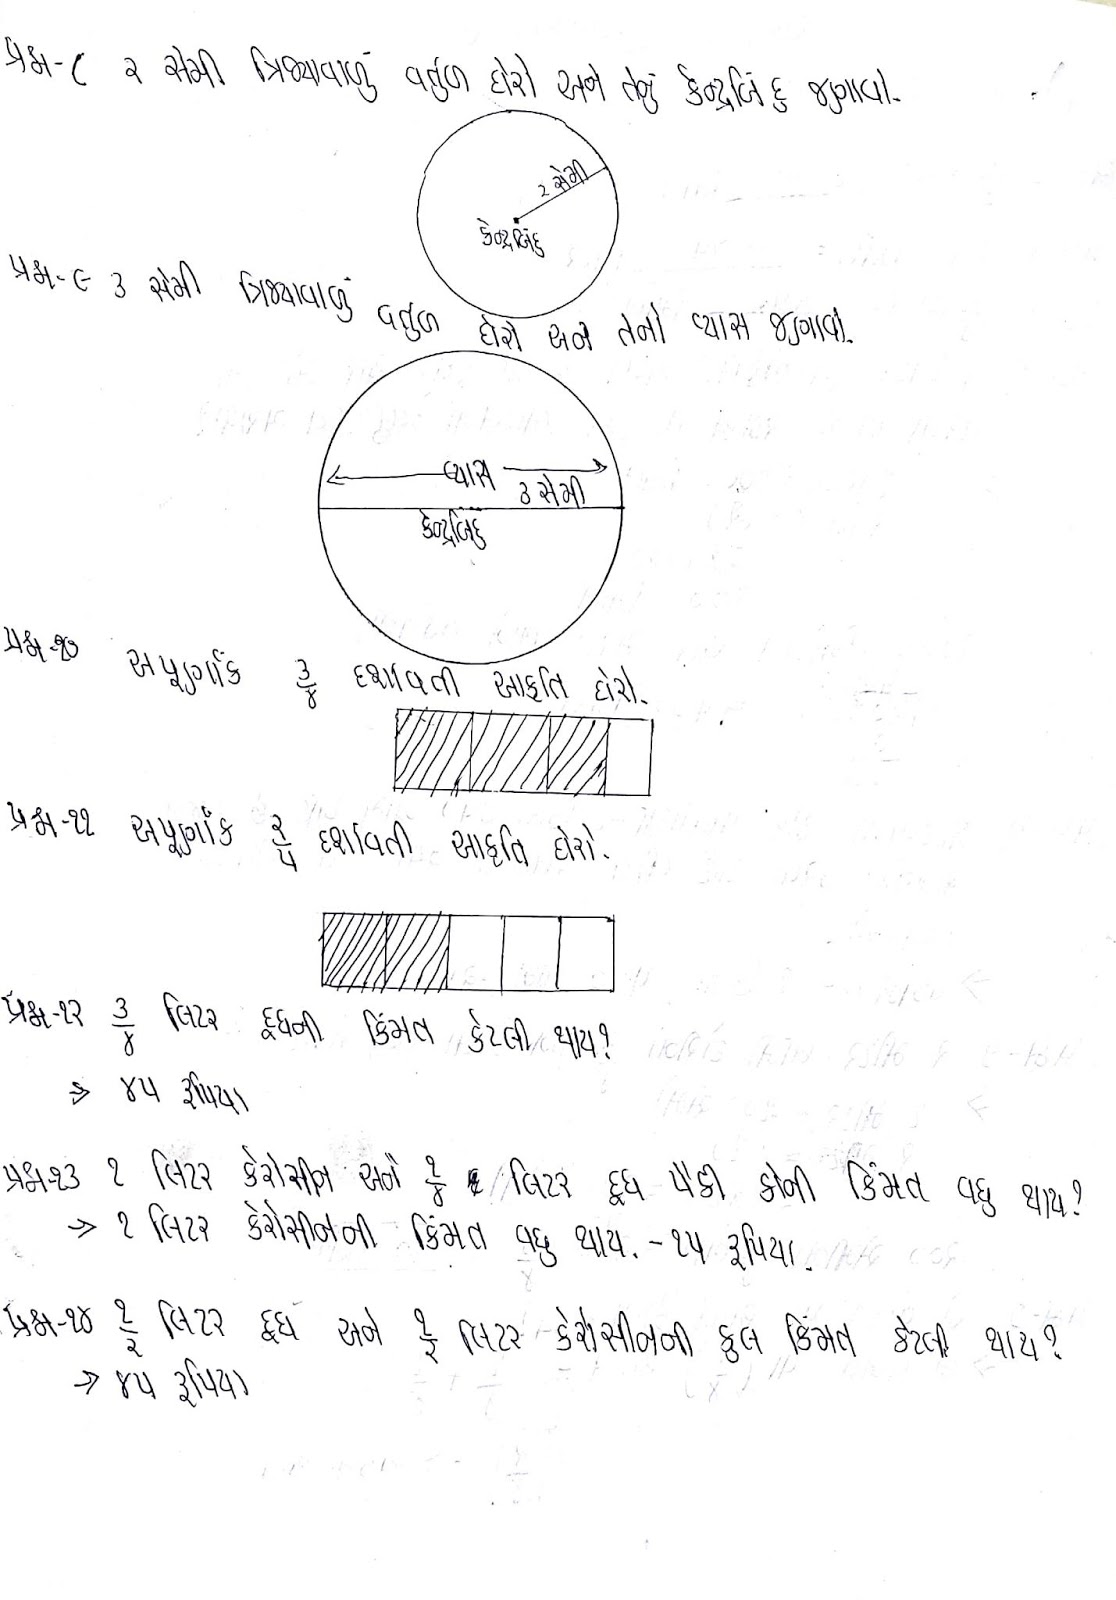 પ્રશ્ન-૮ ૨ સેમી ત્રિજ્યાવાળું વર્તુળ દોરો અને તેનું કેન્દ્રબિંદુ જણાવો.
૨ સેમી
કેન્દ્રબિંદુ
પ્રશ્ન-૯ ૩ સેમી ત્રિજ્યાવાળું વર્તુળ દોરો અને તેનો વ્યાસ જણાવો.
વ્યાસ
૩ સેમી
કેન્દ્રબિંદુ
પ્રશ્ન-૧૦ અપૂર્ણાંક ૩/૪ દર્શાવતી આકૃતિ દોરો.
પ્રશ્ન-૧૧ અપૂર્ણાંક ૨/૫ દર્શાવતી આકૃતિ દોરો.
પ્રશ્ન-૧૨ ૩/૪ લિટર દૂધની કિંમત કેટલી થાય?
⇒ ૪૫ રૂપિયા
પ્રશ્ન-૧૩ ૧ લિટર કેરોસીન અને ૧/૪ લિટર દૂધ પૈકી કોની કિંમત વધુ થાય?
→ ૧ લિટર કેરોસીનની કિંમત વધુ થાય. - ૨૫ રૂપિયા.
પ્રશ્ન-૧૪ ૧/૨ લિટર દૂધ અને ૧/૨ લિટર કેરોસીનની કુલ કિંમત કેટલી થાય?
→ ૪૫ રૂપિયા